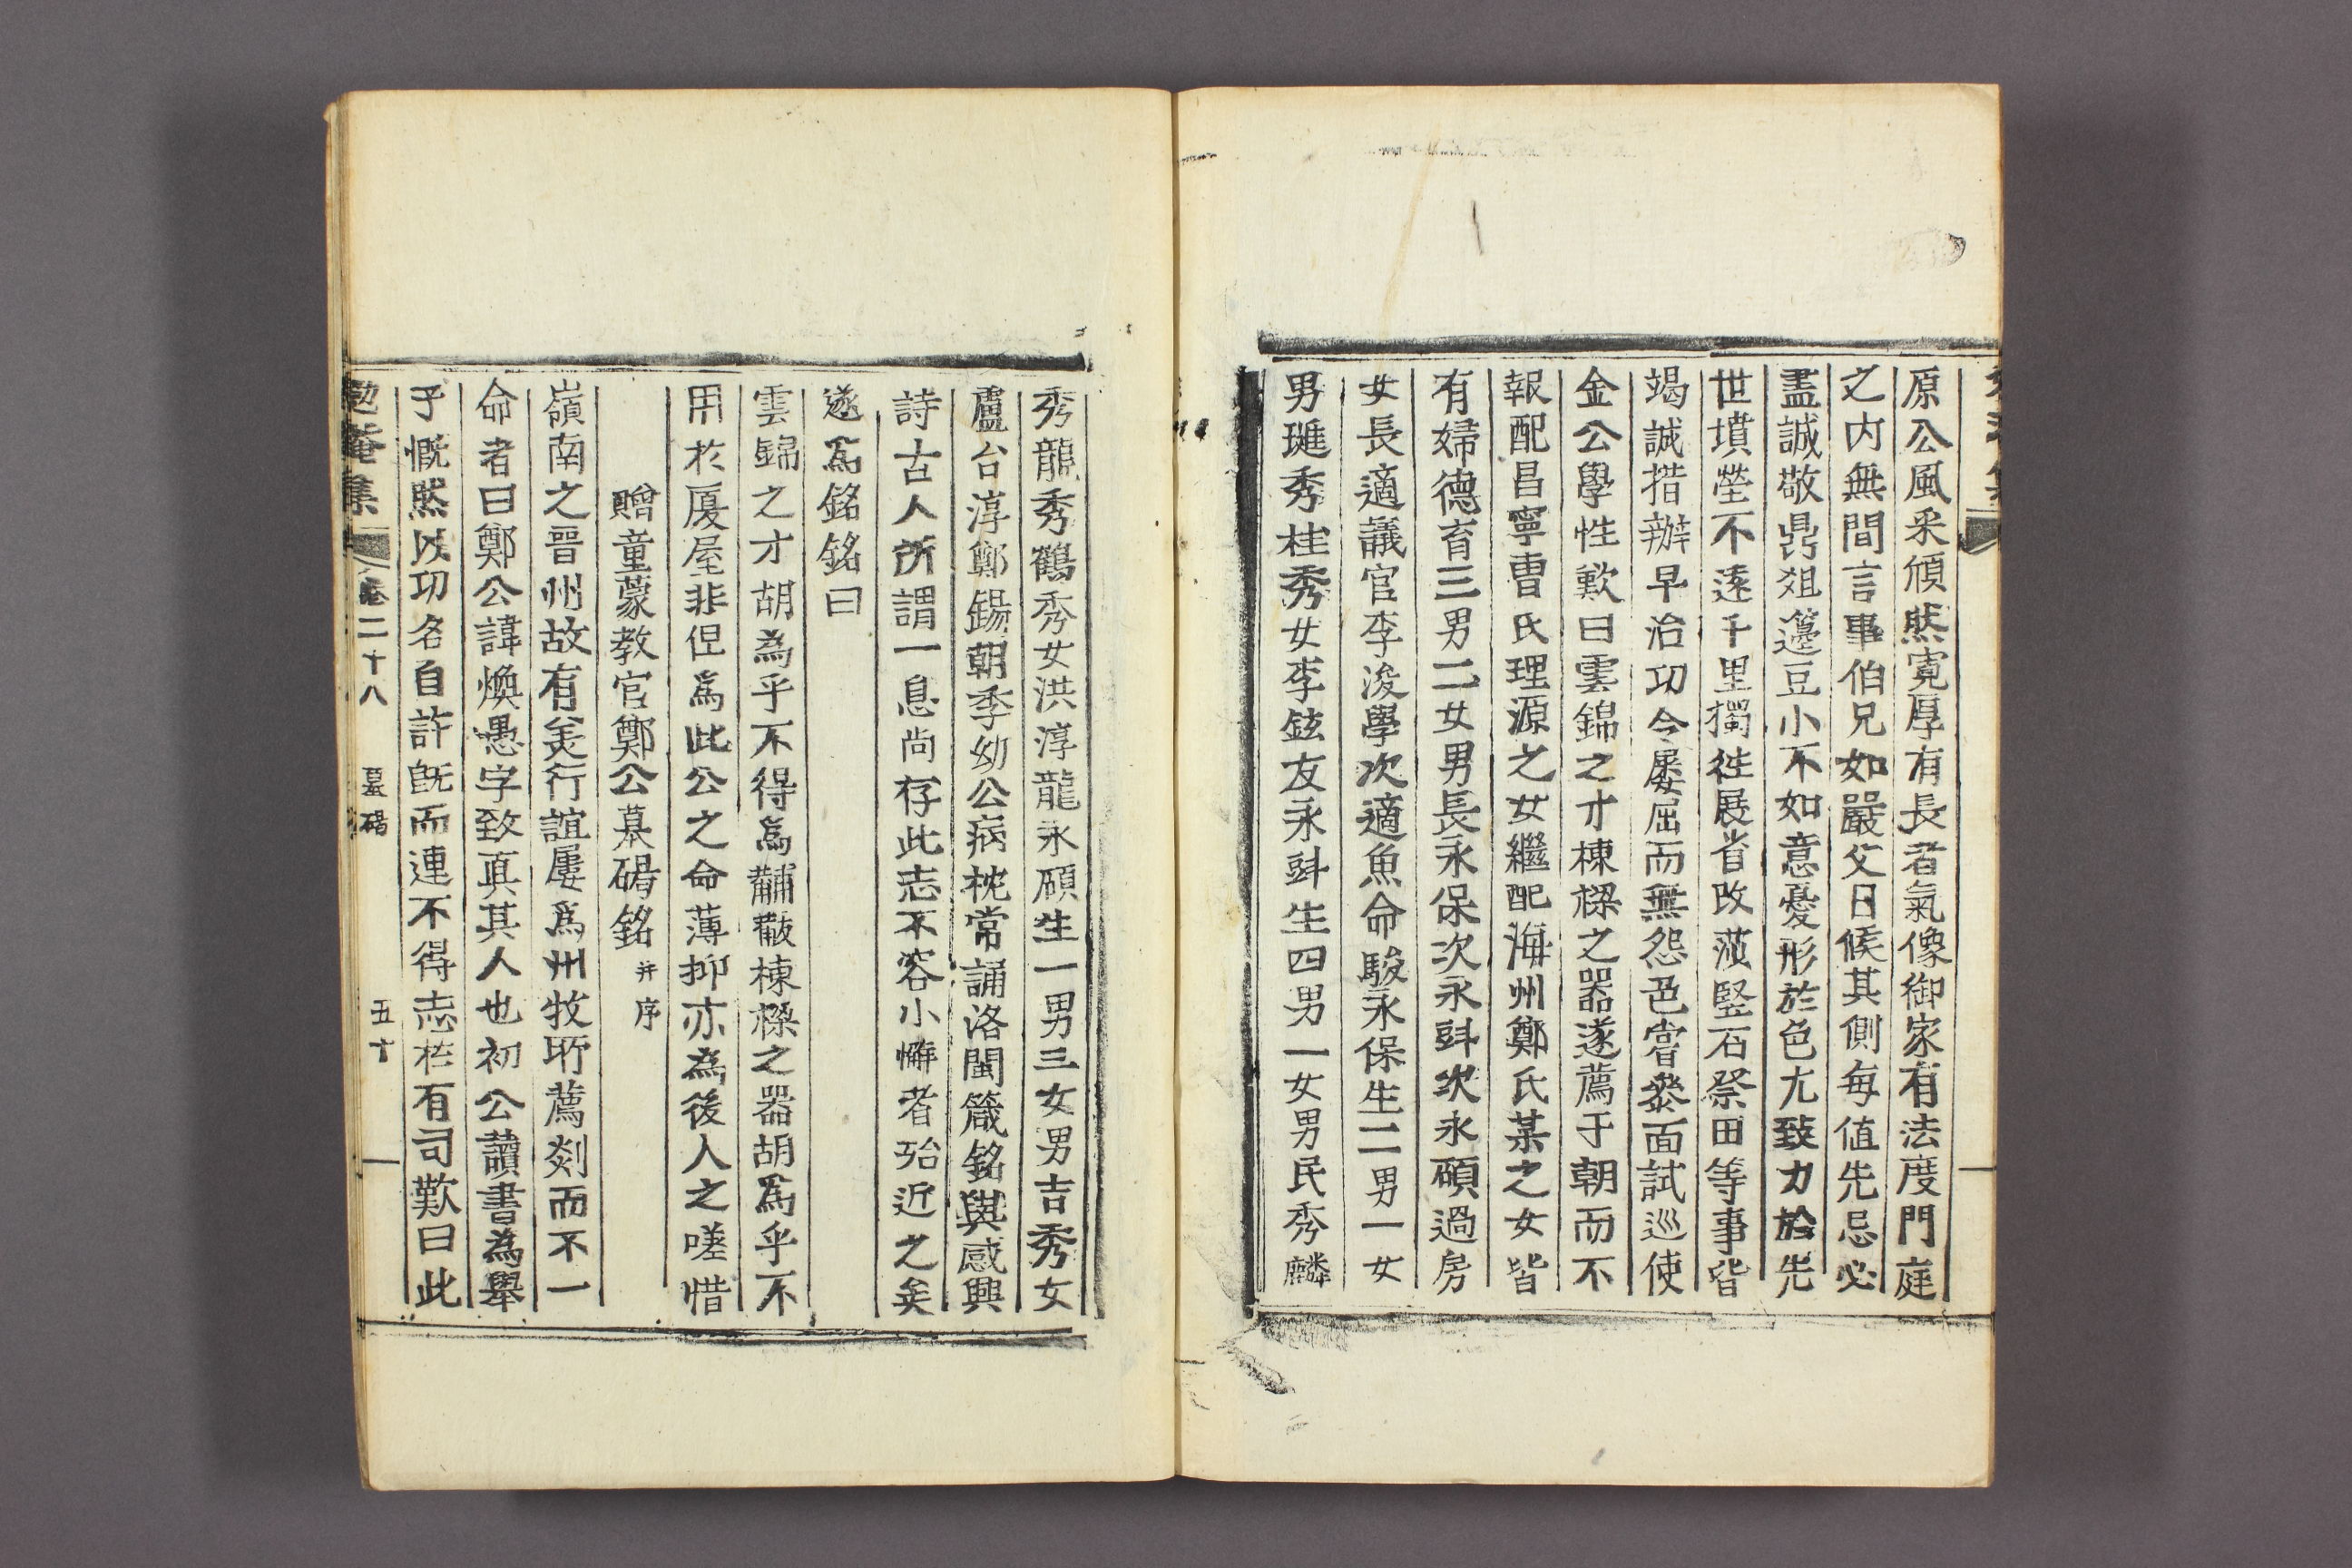 原公風采頎然寬厚有長者氣像御家有法度門庭
之內無間言事伯兄如嚴父日候其側每値先忌必
盡誠敬鼎俎籩豆小不如意憂形於色尤致力於先
世墳塋不遠千里獨徃展省改莎竪石祭田等事皆
竭誠措辦早治功令屢屈而無怨色嘗發面試巡使
金公學性歎曰雲錦之才棟樑之器遂薦于朝而不
報配昌寧曺氏理源之女繼配海州鄭氏某之女皆
有婦德育三男二女男長永保次永斗次永碩過房
女長適議官李浚學次適魚命駿永保生二男一女
男璡秀桂秀女李鉉友永斗生四男一女男民秀麟
秀龍秀鶴秀女洪淳龍永碩生一男三女男吉秀女
盧台淳鄭錫朝季幼公病枕常誦洛閩箴銘與感興
詩古人所謂一息尚存此志不容小懈者殆近之矣
遂爲銘銘曰
雲錦之才胡爲乎不得爲黼黻棟樑之器胡爲乎不
用於廈屋非但爲此公之命薄抑亦爲後人之嗟惜
贈童蒙教官鄭公墓碣銘 并序
嶺南之晉州故有美行誼屢爲州牧所薦剡而不一
命者曰鄭公諱煥愚字致眞其人也初公讀書爲擧
子慨然以功名自許旣而連不得志於有司歎曰此
勉菴集 卷二十八 墓碣 五十